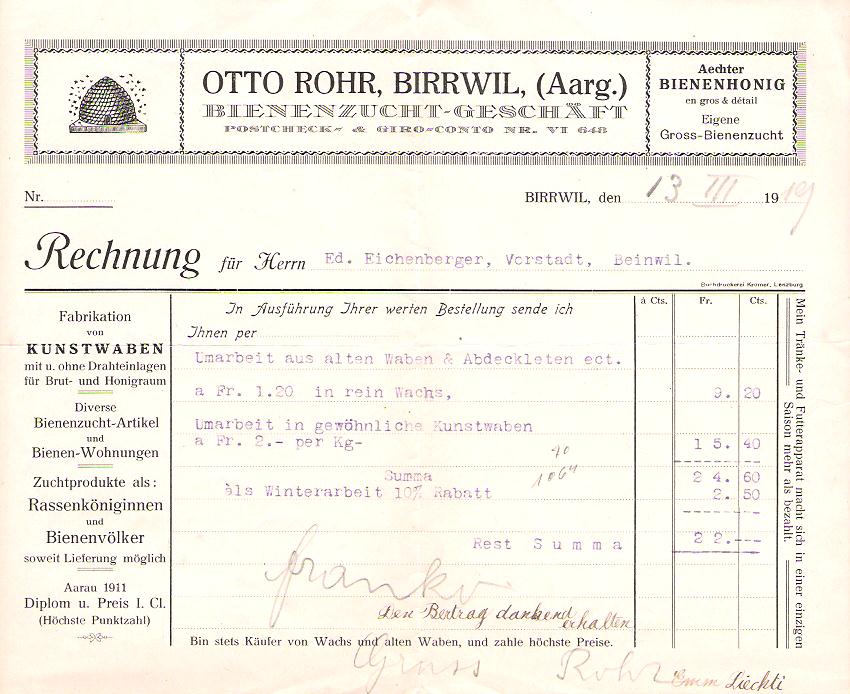 OTTO ROHR, BIRRWIL, (Aarg.)
BIENENZUCHT-GESCHÄFT
POSTCHECK- & GIRO-CONTO NR. VI 648
Aechter
BIENENHONIG
en gros & détail
Eigene
Gross-Bienenzucht
Nr.
BIRRWIL, den 13 III 1919
Rechnung für Herrn Ed. Eichenberger, Vorstadt, Beinwil.
Buchdruckerei Kromer, Lenzburg
Fabrikation
von
KUNSTWABEN
mit u. ohne Drahteinlagen
für Brut- und Honigraum
Diverse
Bienenzucht-Artikel
und
Bienen-Wohnungen
Zuchtprodukte als:
Rassenköniginnen
und
Bienenvölker
soweit Lieferung möglich
Aarau 1911
Diplom u. Preis I. Cl.
(Höchste Punktzahl)
In Ausführung Ihrer werten Bestellung sende ich
Ihnen per
à Cts. Fr. Cts.
Umarbeit aus alten Waben & Abdeckleten ect.
a Fr. 1.20 in rein Wachs, 9. 20
Umarbeit in gewöhnliche Kunstwaben
a Fr. 2.- per Kg- 15. 40
Summa 24. 60
als Winterarbeit 10% Rabatt 2. 50
Rest Summa 22.---
franko
Den Bertrag dankend erhalten
Bin stets Käufer von Wachs und alten Waben, und zahle höchste Preise.
Gruss Rohr
Emm Liechti
Mein Tränke- und Futterapparat macht sich in einer einzigen
Saison mehr als bezahlt.